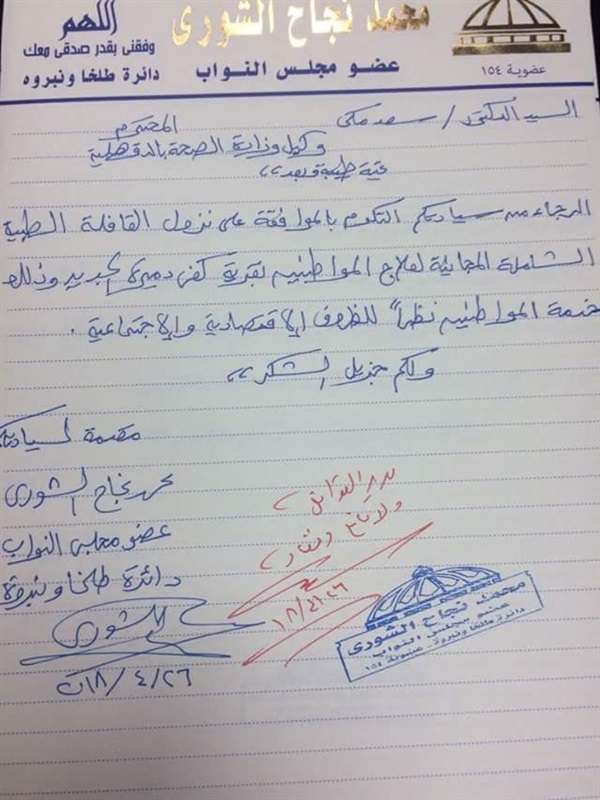 اللهم
وفقنى بقدر صدقى معك
دائرة طلخا ونبروه
محمد نجاح الشورى
عضو مجلس النواب
عضوية ١٥٤
السيد الدكتور / سعد مكى
المحترم
وكيل وزارة الصحة بالدقهلية
تحية طيبة وبعد ،،
الرجاء من سيادتكم التكرم بالموافقة على نزول القافلة الطبية
الشاملة المجانية لعلاج المواطنين بقرية كفر دميرة الجديد وذلك
خدمة المواطنين نظراً للظروف الاقتصادية والاجتماعية .
ولكم جزيل الشكر ،،
مقدمة لسيادتكم
محمد نجاح الشورى
عضو مجلس النواب
دائرة طلخا ونبروة
ولا مانع
٢٠١٨/٤/٢٦
محمد نجاح الشورى
عضو مجلس النواب
دائرة طلخا ونبروة - عضوية ١٥٤